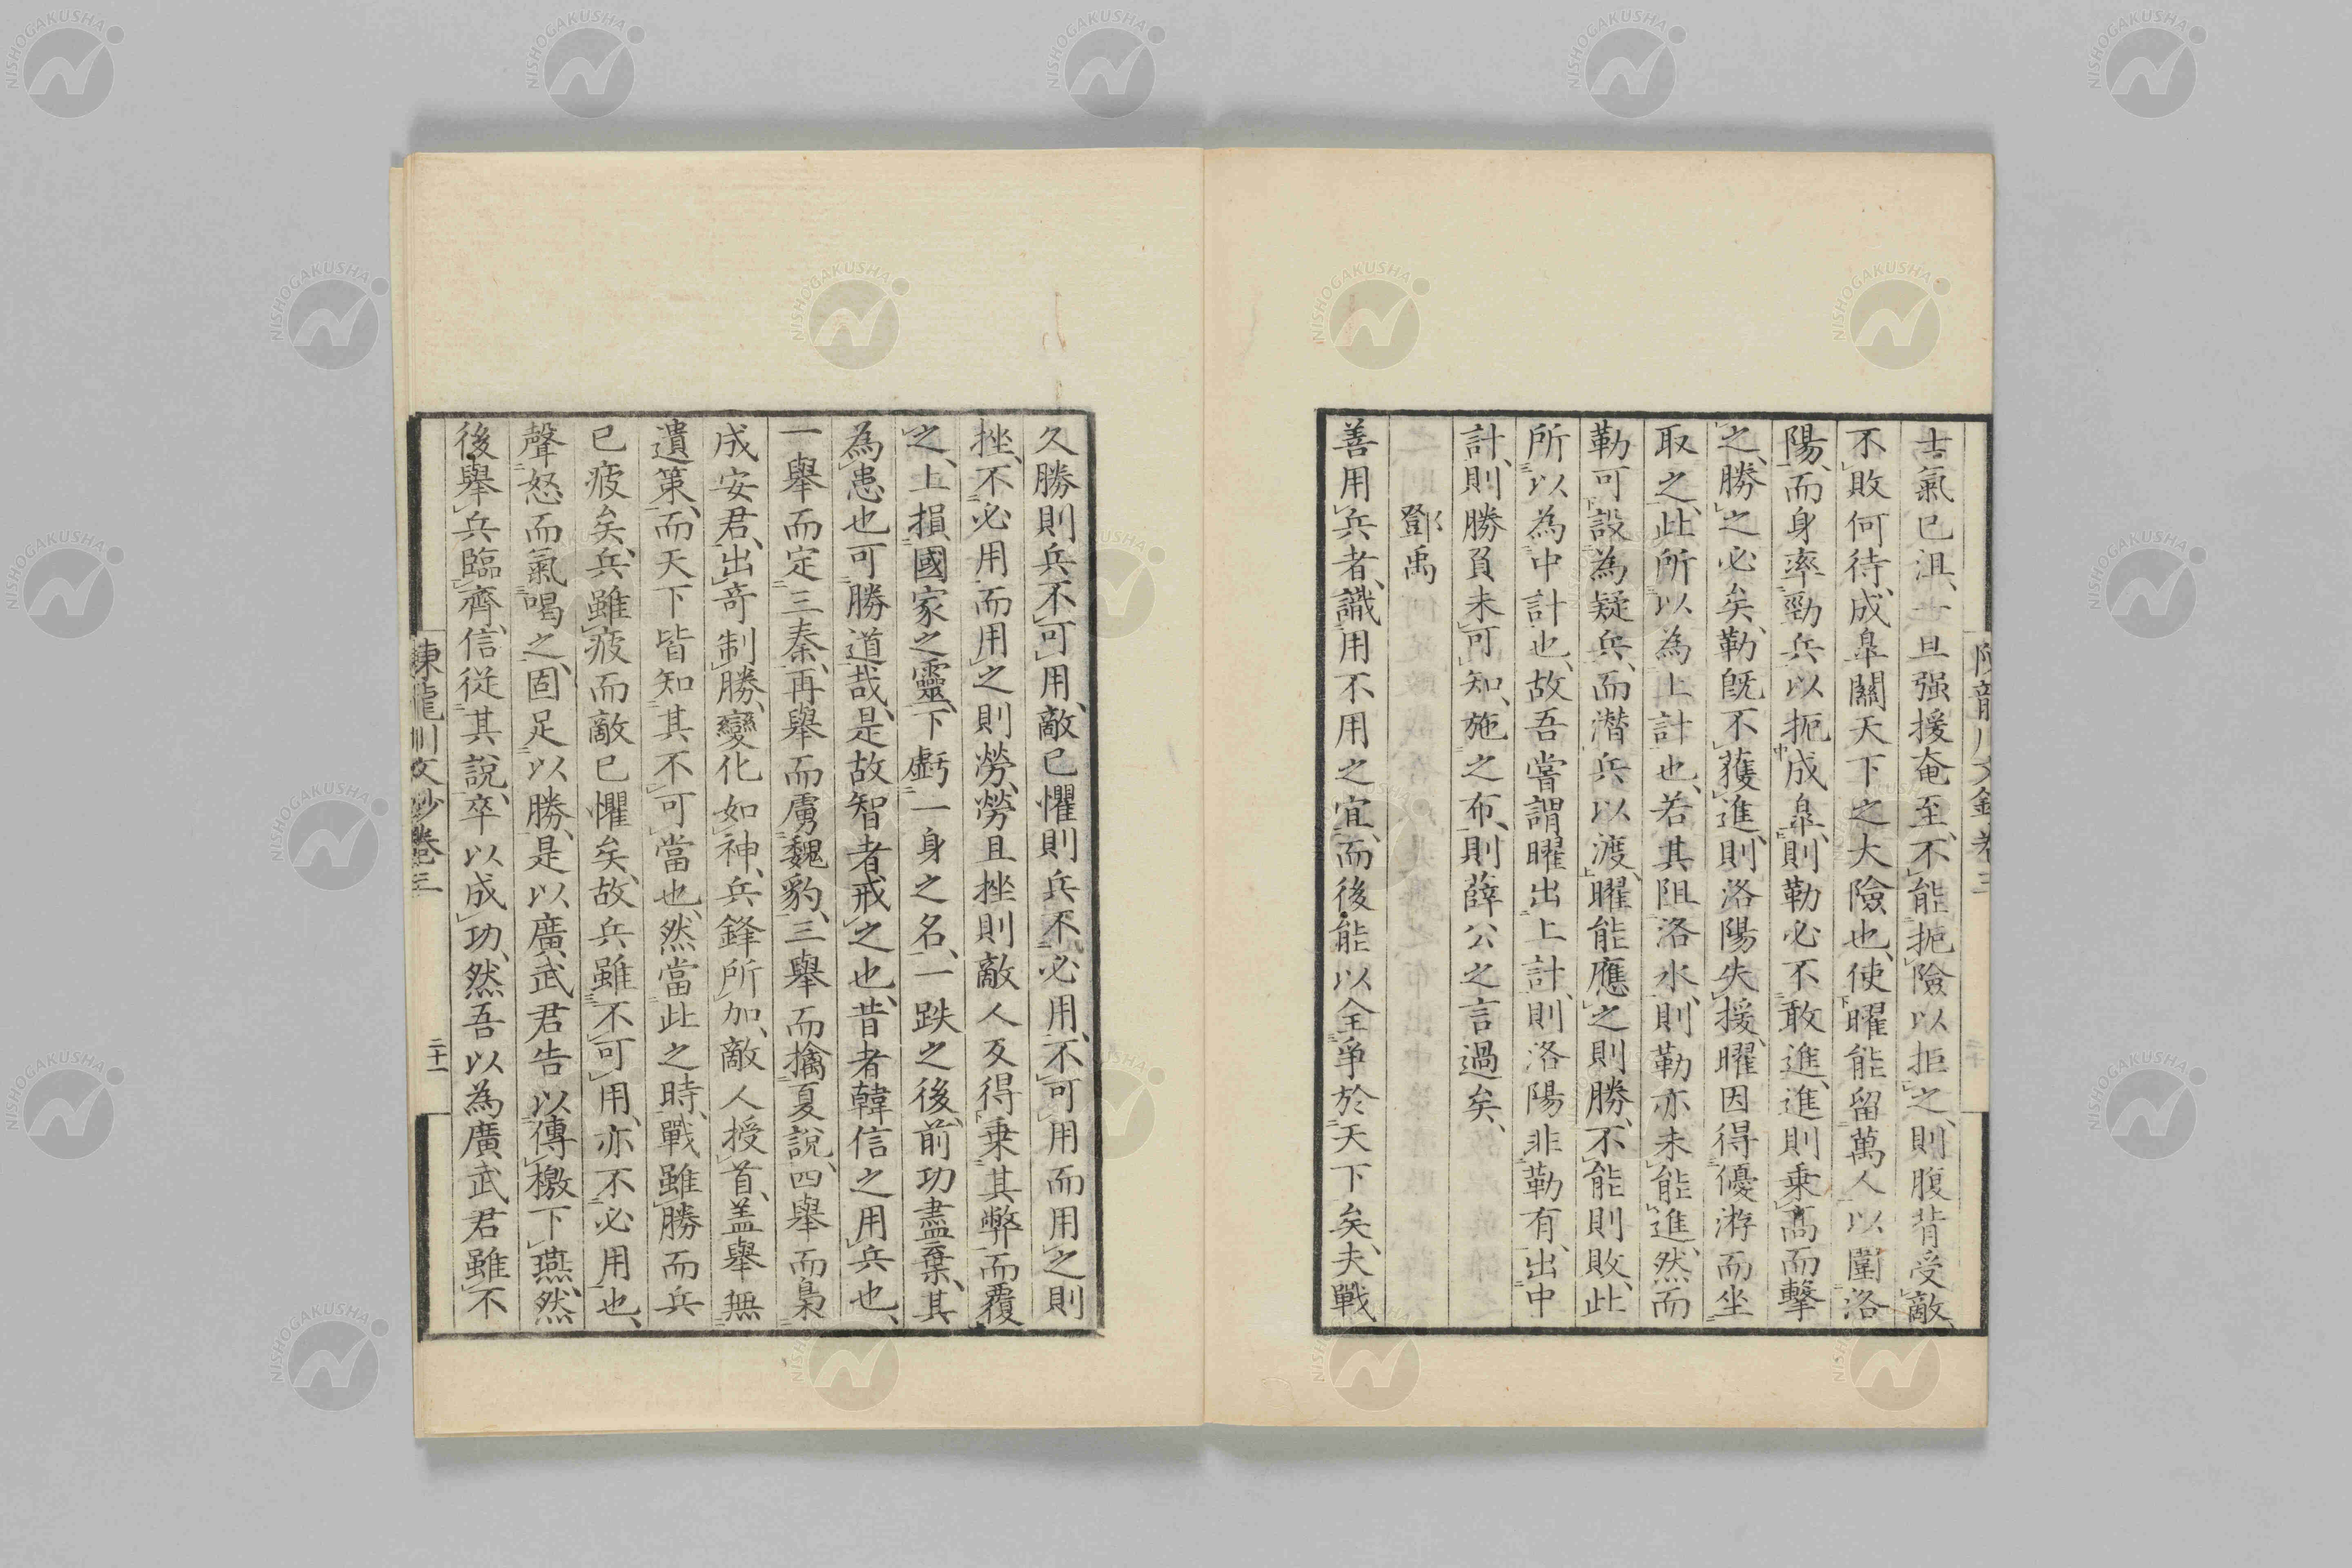 士氣已沮、一旦强援奄至、不能扼險以拒之、則腹背受敵、
不敗何待、成皐關天下之大險也、使曜能留萬人以圍洛
陽、而身率勁兵以扼成皐、則勒必不敢進、進則乘高而擊
之、勝之必矣、勒旣不獲進、則洛陽失援、曜因得優游而坐
取之、此所以為上計也、若其阻洛水、則勒亦未能進、然而
勒可設為疑兵、而潛兵以渡、曜能應之則勝、不能則敗、此
所以為中計也、故吾嘗謂曜出上計、則洛陽非勒有、出中
計、則勝負未可知、施之布、則薛公之言過矣、
鄧禹
善用兵者、識用不用之宜、而後能以全爭於天下矣、夫戰
久勝則兵不可用、敵已懼則兵不必用、不可用而用之則
挫、不必用而用之則勞、勞且挫則敵人反得乘其弊而覆
之、上損國家之靈、下虧一身之名、一跌之後、前功盡棄、其
為患也可勝道哉、是故智者戒之也、昔者韓信之用兵也、
一舉而定三秦、再舉而虜魏豹、三舉而擒夏說、四舉而梟
成安君、出奇制勝、變化如神、兵鋒所加、敵人授首、盖舉無
遺策、而天下皆知其不可當也、然當此之時、戰雖勝而兵
已疲矣、兵雖疲而敵已懼矣、故兵雖不可用、亦不必用也、
聲怒而氣喝之、固足以勝、是以廣武君告以傳檄下燕、然
後舉兵臨齊、信從其說、卒以成功、然吾以為廣武君雖不
陳龍川文鈔卷三
二十一
NISHOGAKUSHA